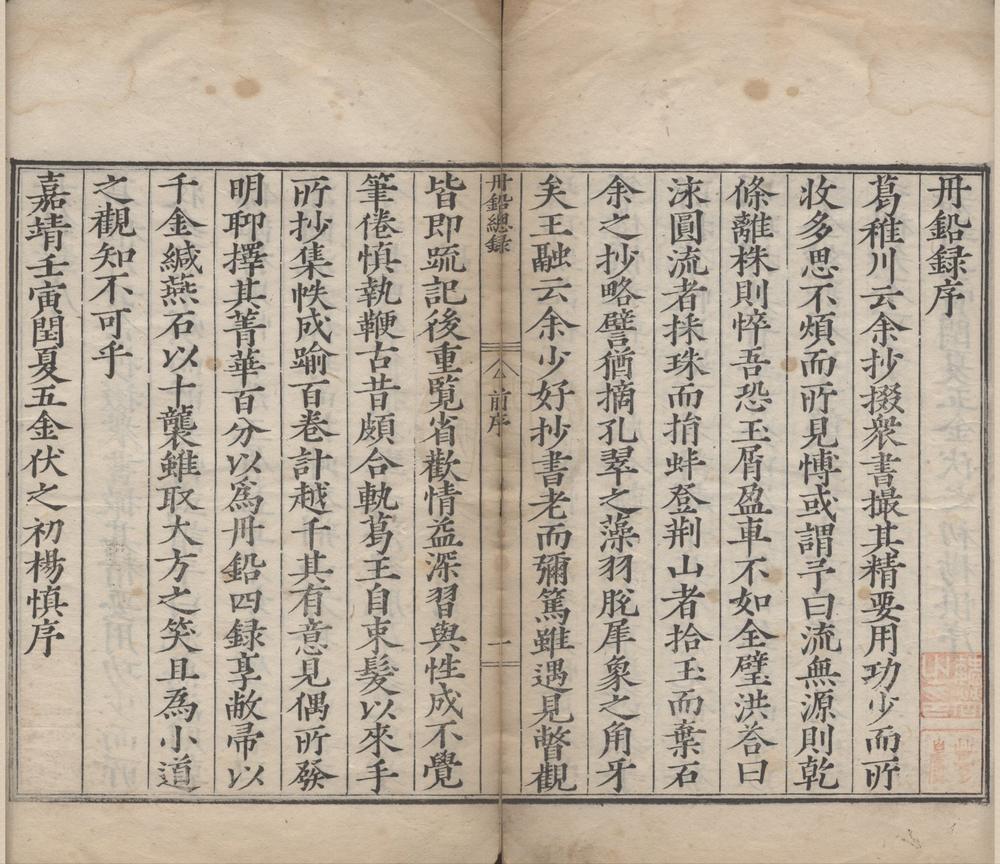 丹鉛録序
葛稚川云余抄掇衆書撮其精要用功少而所
收多思不煩而所見愽或謂予曰流無源則乾
條離株則悴吾恐玉屑盈車不如全璧洪荅曰
泳圓流者採珠而捎蚌登荆山者拾玉而棄石
余之抄略譬猶摘孔翠之藻羽脫犀象之角牙
矣王融云余少好抄書老而彌篤雖遇見瞥觀
丹鉛總録
前序
一
皆即疏記後重覧省歡情益深習與性成不覺
筆倦慎執鞭古昔頗合軌葛王自束髪以來手
所抄集帙成踰百卷計越千其有意見偶所發
明聊擇其菁華百分以爲丹鉛四録享敝帚以
千金緘燕石以十襲雖取大方之笑且為小道
之觀知不可乎
嘉靖壬寅閏夏五金伏之初楊慎序